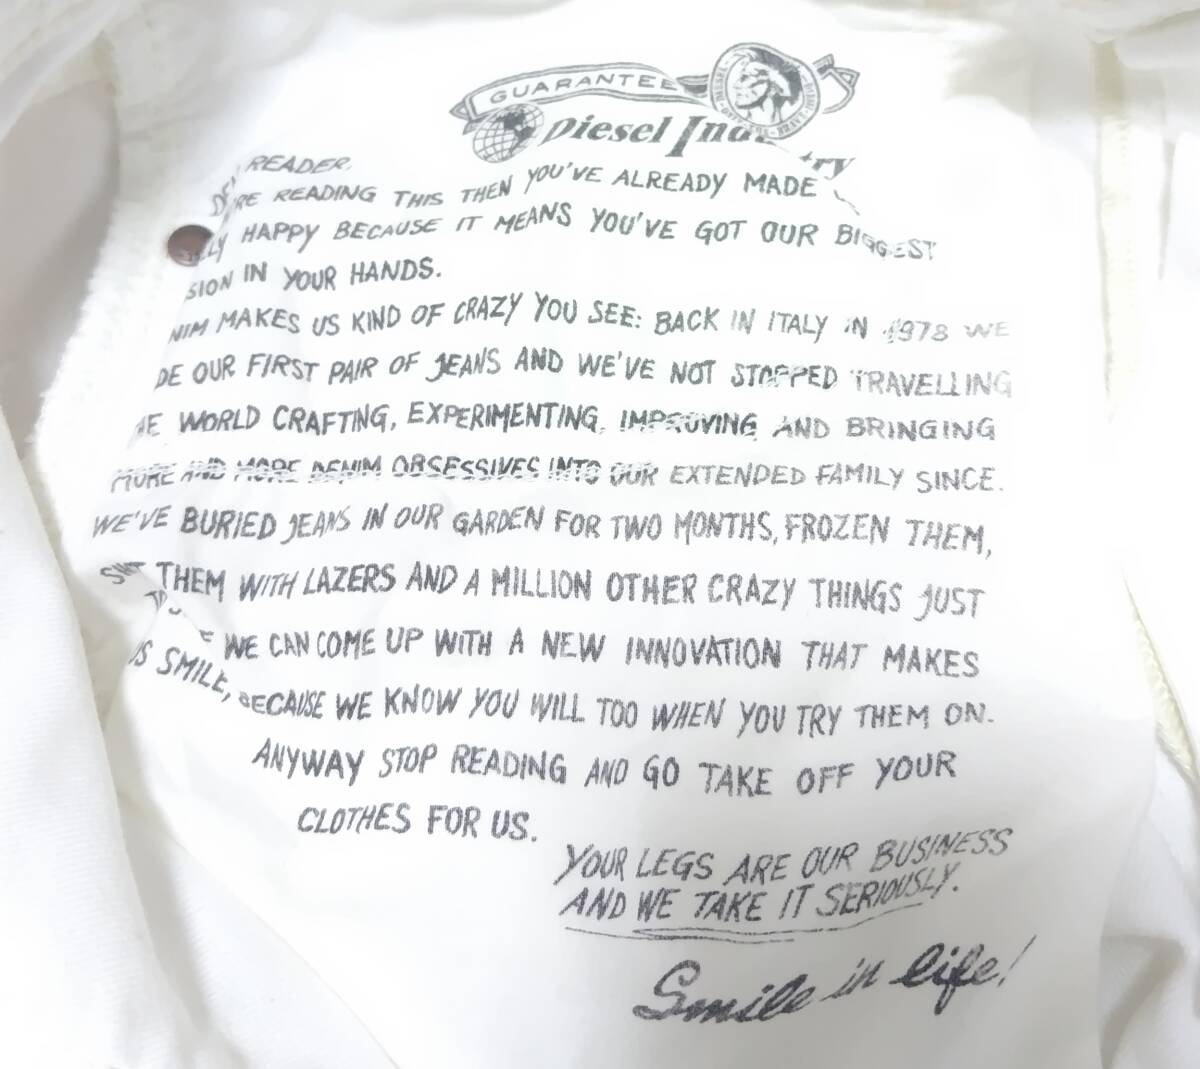 GUARANTEE
Diesel Ind try
READER.
RE READING THIS THEN YOU'VE ALREADY MADE
LY HAPPY BECAUSE IT MEANS YOU'VE GOT OUR BIGGEST
SION IN YOUR HANDS.
NIM MAKES US KIND OF CRAZY YOU SEE: BACK IN ITALY IN 1978 WE
DE OUR FIRST PAIR OF JEANS AND WE'VE NOT STOPPED TRAVELLING
HE WORLD CRAFTING, EXPERIMENTING, IMPROVING AND BRINGING
MORE AND MORE DENIM OBSESSIVES INTO OUR EXTENDED FAMILY SINCE.
WE'VE BURIED JEANS IN OUR GARDEN FOR TWO MONTHS, FROZEN THEM,
THEM WITH LAZERS AND A MILLION OTHER CRAZY THINGS JUST
WE CAN COME UP WITH A NEW INNOVATION THAT MAKES
US SMILE, BECAUSE WE KNOW YOU WILL TOO WHEN YOU TRY THEM ON.
ANYWAY STOP READING AND GO TAKE OFF YOUR
CLOTHES FOR US.
YOUR LEGS ARE OUR BUSINESS
AND WE TAKE IT SERIOUSLY.
Smile in life!